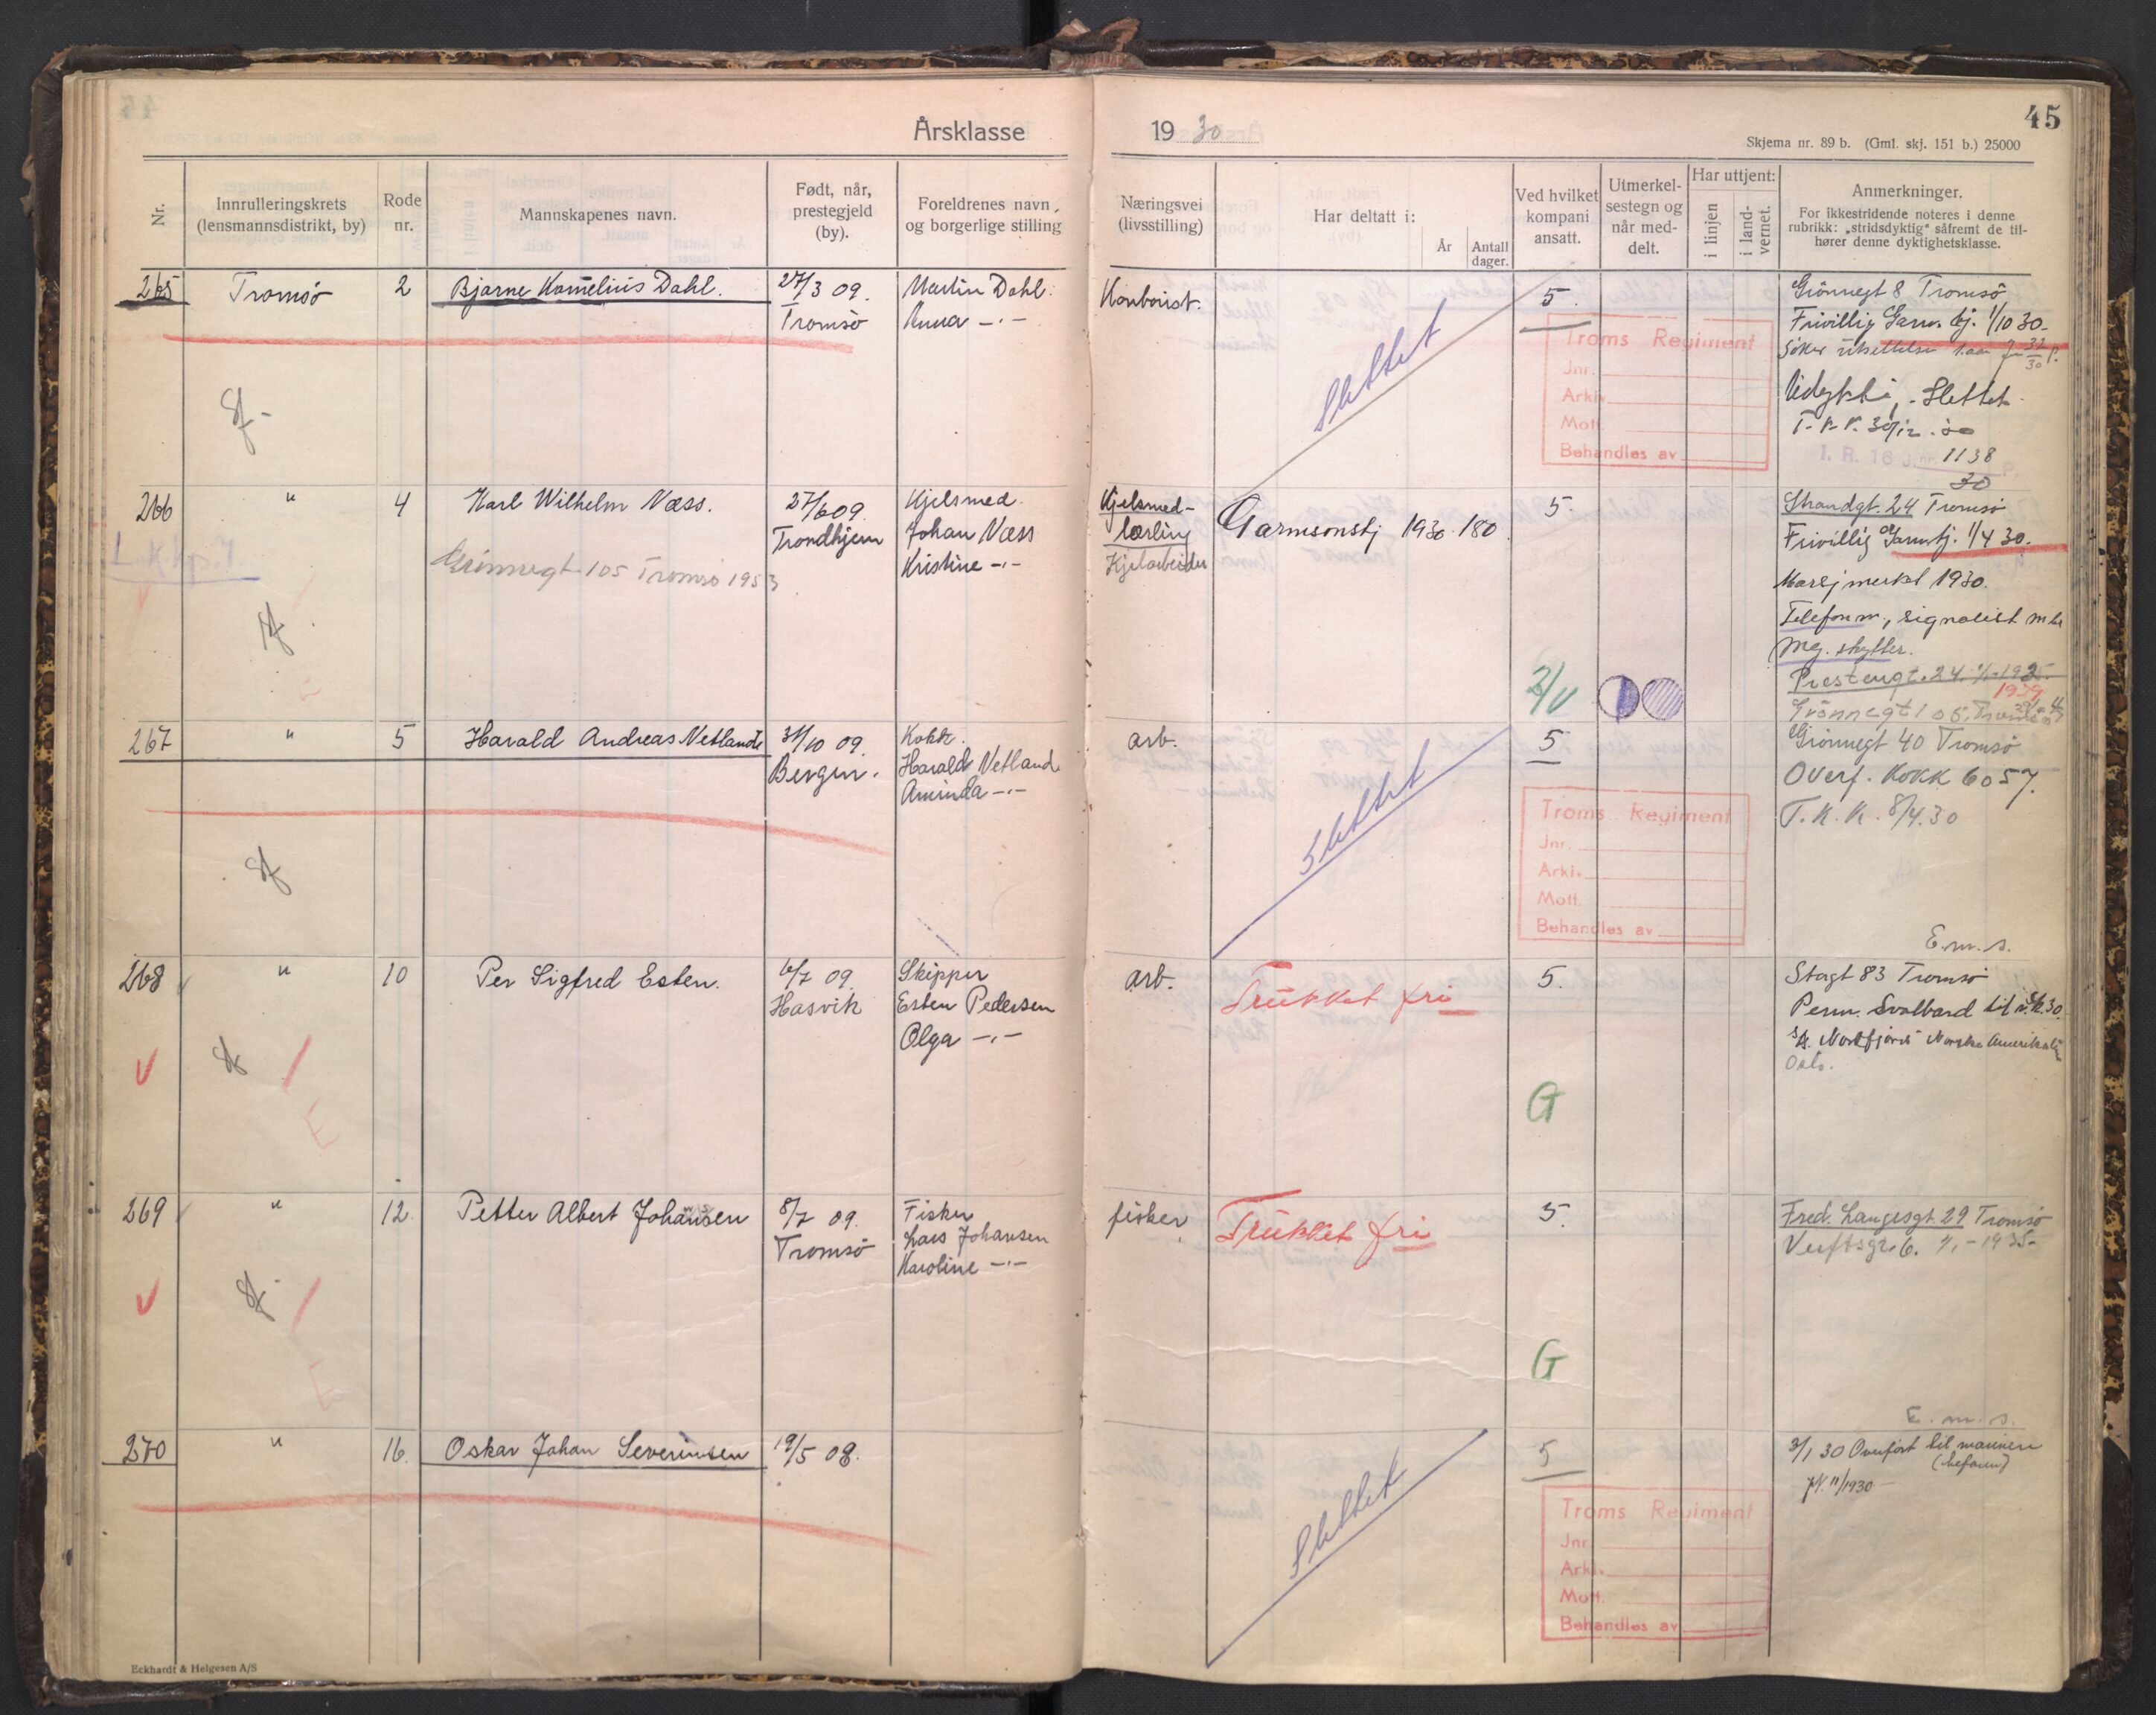 Årsklasse
19 30
45
Skjema nr. 89 b. (Gml. skj. 151 b.) 25000
Nr.
Innrulleringskrets
(lensmannsdistrikt, by)
Rode
nr.
Mannskapenes navn.
Født, når,
prestegjeld
(by).
Foreldrenes navn
og borgerlige stilling
Næringsvei
(livsstilling)
Har deltatt i:
År
Antall
dager.
Ved hvilket
kompani
ansatt.
Utmerkel-
sestegn og
når med-
delt.
Har uttjent:
i linjen
i land-
vernet.
Anmerkninger.
For ikkestridende noteres i denne
rubrikk: „stridsdyktig" såfremt de til-
hører denne dyktighetsklasse.
265 Tromsö 2 Bjarne Kornelius Dahl. 27/3 09.
Tromsö
Martin Dahl.
Anna -"-
Kontorist.
Slettet
5.
Troms Regiment
Jnr.
Arkiv
Mott.
Behandles av
Grönnegt 8 Tromsö
Frivillig Garn. tj. 1/10 30.
Söker utsettelse
Slettet
1138
30
266 " 4 Karl Wilhelm Næss. 27/6 09.
Trondhjem
Grönnegt 105 Tromsö 1953
Kjelsmed.
Johan Næss
Kristine -"-
Kjelsmed-
lærling
Kjelarbeider
Garnisonstj 1930 180
5.
Strandgt. 24 Tromsö
Frivillig Garn. tj. 1/4 30.
Marsjmerket 1930.
Telefonm., signalist
Mg. skytter.
Prestengt. 24
1939
Grönnegt 105. Tromsö
267 " 5 Harald Andreas Netland 31/10 09.
Bergen.
Kokk.
Harald Netland
Aminda -"-
arb.
Slettet
5
Troms Regiment
Jnr.
Arkiv
Mott.
Behandles av
Grönnegt 40 Tromsö
Overf. KOKK 6057.
T.K.K. 8/4.30
268 " 10 Per Sigfred Esten. 6/7 09.
Hasvik
Skipper
Esten Pedersen
Olga -"-
arb.
Trukket fri
5.
G
E.m.s.
Storgt 83 Tromsö
Perm. Svalbard til
Oslo.
269 " 12 Petter Albert Johansen 8/7 09.
Tromsö
Fisker
Lars Johansen
Karoline -"-
fisker
Trukket fri
5.
G
Fred. Langesgt 29 Tromsö
Verftsgt. 6. 1/1 - 1935-
270 " 16. Oskar Johan Severinsen 19/5 08.
Slettet
5
Troms Regiment
Jnr.
Arkiv
Mott.
Behandles av
E.m.s.
3/1 30 Overfört til marinen
11/1930
V
E
V
E
Eckhardt & Helgesen A/S